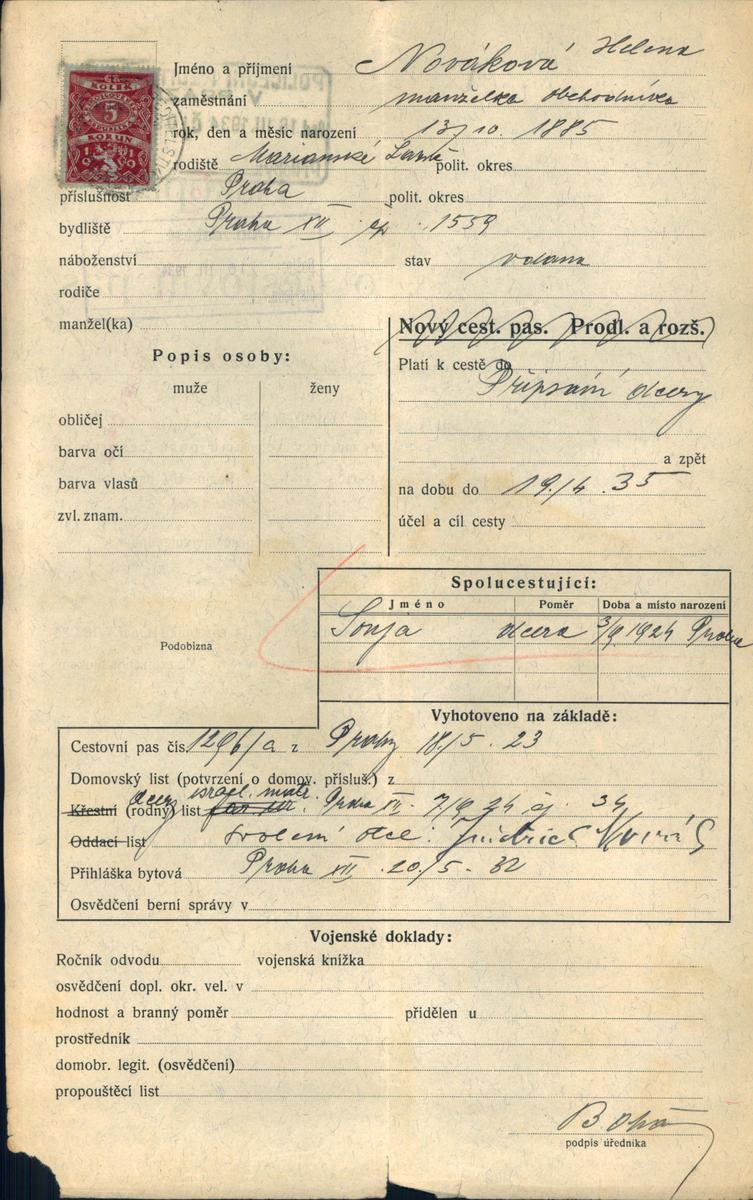 ČR.
KOLEK
5
KORUN
1919
Jméno a příjmení Nováková Helena
zaměstnání manželka obchodníka
rok, den a měsíc narození 13/10. 1885
rodiště Marianské Lázně polit. okres
příslušnost Praha polit. okres
bydliště Praha XII čp. 1559
náboženství stav vdana
rodiče
manžel(ka)
Nový cest. pas. Prodl. a rozš.
Popis osoby:
muže ženy
obličej
barva očí
barva vlasů
zvl. znam.
Platí k cestě do Připsání dcery
a zpět
na dobu do 19./4. 35
účel a cíl cesty
Podobizna
Spolucestující:
Jméno Poměr Doba a místo narození
Sonja dcera 3/9 1924 Praha
Vyhotoveno na základě:
Cestovní pas čís. 1296/a z Prahy 18/5. 23
Domovský list (potvrzení o domov. přísluš.) z
dcery israel. matr.
Křestní (rodný) list Praha XII. 7/9 24 čj. 34
Oddací list svolení otce:
Přihláška bytová Praha XII. 20/5. 32
Osvědčení berní správy v
Vojenské doklady:
Ročník odvodu vojenská knížka
osvědčení dopl. okr. vel. v
hodnost a branný poměr přidělen u
prostředník
domobr. legit. (osvědčení)
propouštěcí list
podpis úředníka